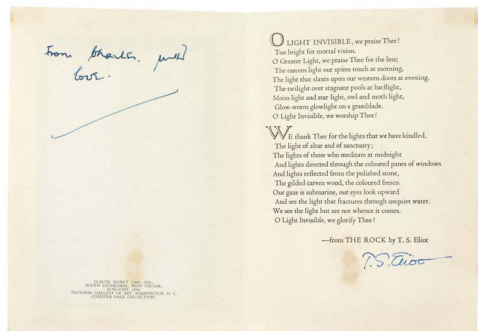 From Charles, with
love.
CLAUDE MONET (1840–1926)
ROUEN CATHEDRAL, WEST FAÇADE,
SUNLIGHT 1894
NATIONAL GALLERY OF ART, WASHINGTON, D. C.
(CHESTER DALE COLLECTION)
O LIGHT INVISIBLE, we praise Thee!
Too bright for mortal vision.
O Greater Light, we praise Thee for the less;
The eastern light our spires touch at morning,
The light that slants upon our western doors at evening,
The twilight over stagnant pools at batflight,
Moon light and star light, owl and moth light,
Glow-worm glowlight on a grassblade.
O Light Invisible, we worship Thee!
WE thank Thee for the lights that we have kindled,
The light of altar and of sanctuary;
The lights of those who meditate at midnight
And lights directed through the coloured panes of windows
And lights reflected from the polished stone,
The gilded carven wood, the coloured fresco.
Our gaze is submarine, our eyes look upward
And see the light that fractures through unquiet water.
We see the light but see not whence it comes.
O Light Invisible, we glorify Thee!
—from THE ROCK by T. S. Eliot
T. S. Eliot